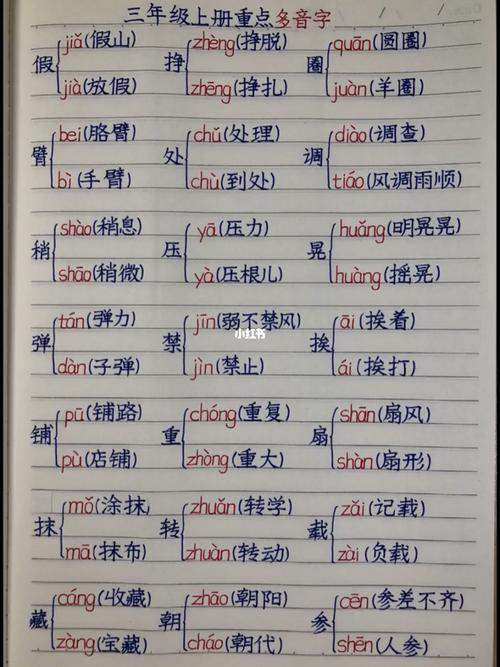 三年级上册重点多音字
jiǎ(假山) zhèng(挣脱) quān(圆圈)
假 挣 圈
jià(放假) zhēng(挣扎) juàn(羊圈)
bei(胳臂) chǔ(处理) diào(调查)
臂 处 调
bì(手臂) chù(到处) tiáo(风调雨顺)
shào(稍息) yā(压力) huǎng(明晃晃)
稍 压 晃
shāo(稍微) yà(压根儿) huàng(摇晃)
tán(弹力) jīn(弱不禁风) āi(挨着)
小红书
弹 禁 挨
dàn(子弹) jìn(禁止) ái(挨打)
pū(铺路) chóng(重复) shān(扇风)
铺 重 扇
pù(店铺) zhòng(重大) shàn(扇形)
mǒ(涂抹) zhuǎn(转学) zǎi(记载)
抹 转 载
mā(抹布) zhuàn(转动) zài(负载)
cáng(收藏) zhāo(朝阳) cēn(参差不齐)
藏 朝 参
zàng(宝藏) cháo(朝代) shēn(人参)